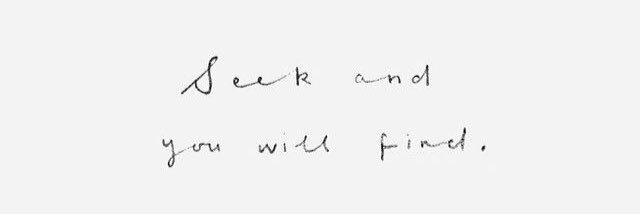 Seek and
you will find.